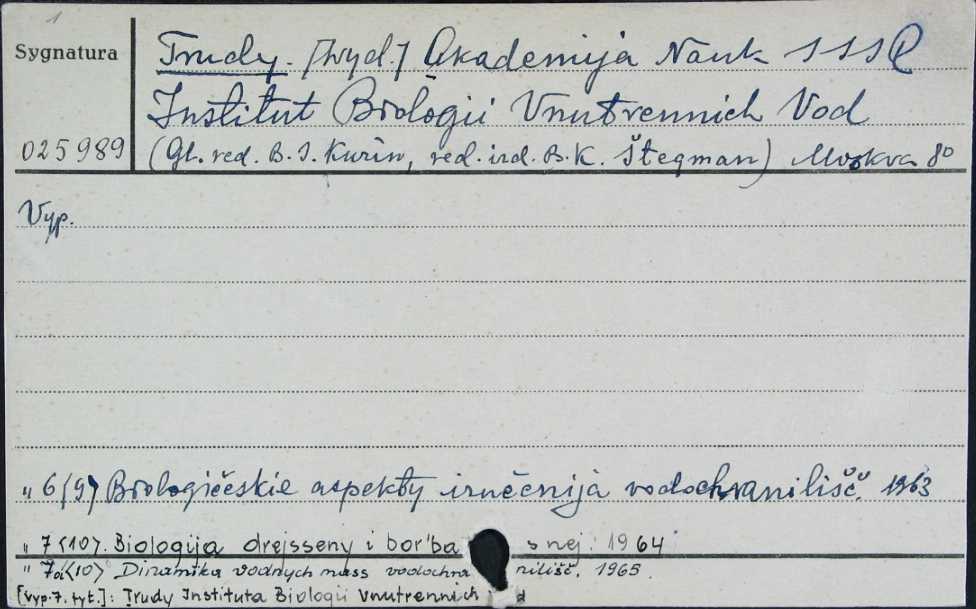 1
Sygnatura
Trudy. [wyd.] Akademija Nauk SSSR
Institut Biologii Vnutrennich Vod
025989
(Gl. red. B. S. Kuzin, red. izd. B. K. Štegman) Moskva 8°
Vyp.
" 6(9) Biologičeskie aspekty izučenija vodochranilišč. 1963
" 7(10). Biologija drejsseny i bor'ba s nej. 1964
" 7a(10) Dinamika vodnych mass vodochranilišč. 1965.
[Vyp. 7. tyt.]: Trudy Instituta Biologii Vnutrennich